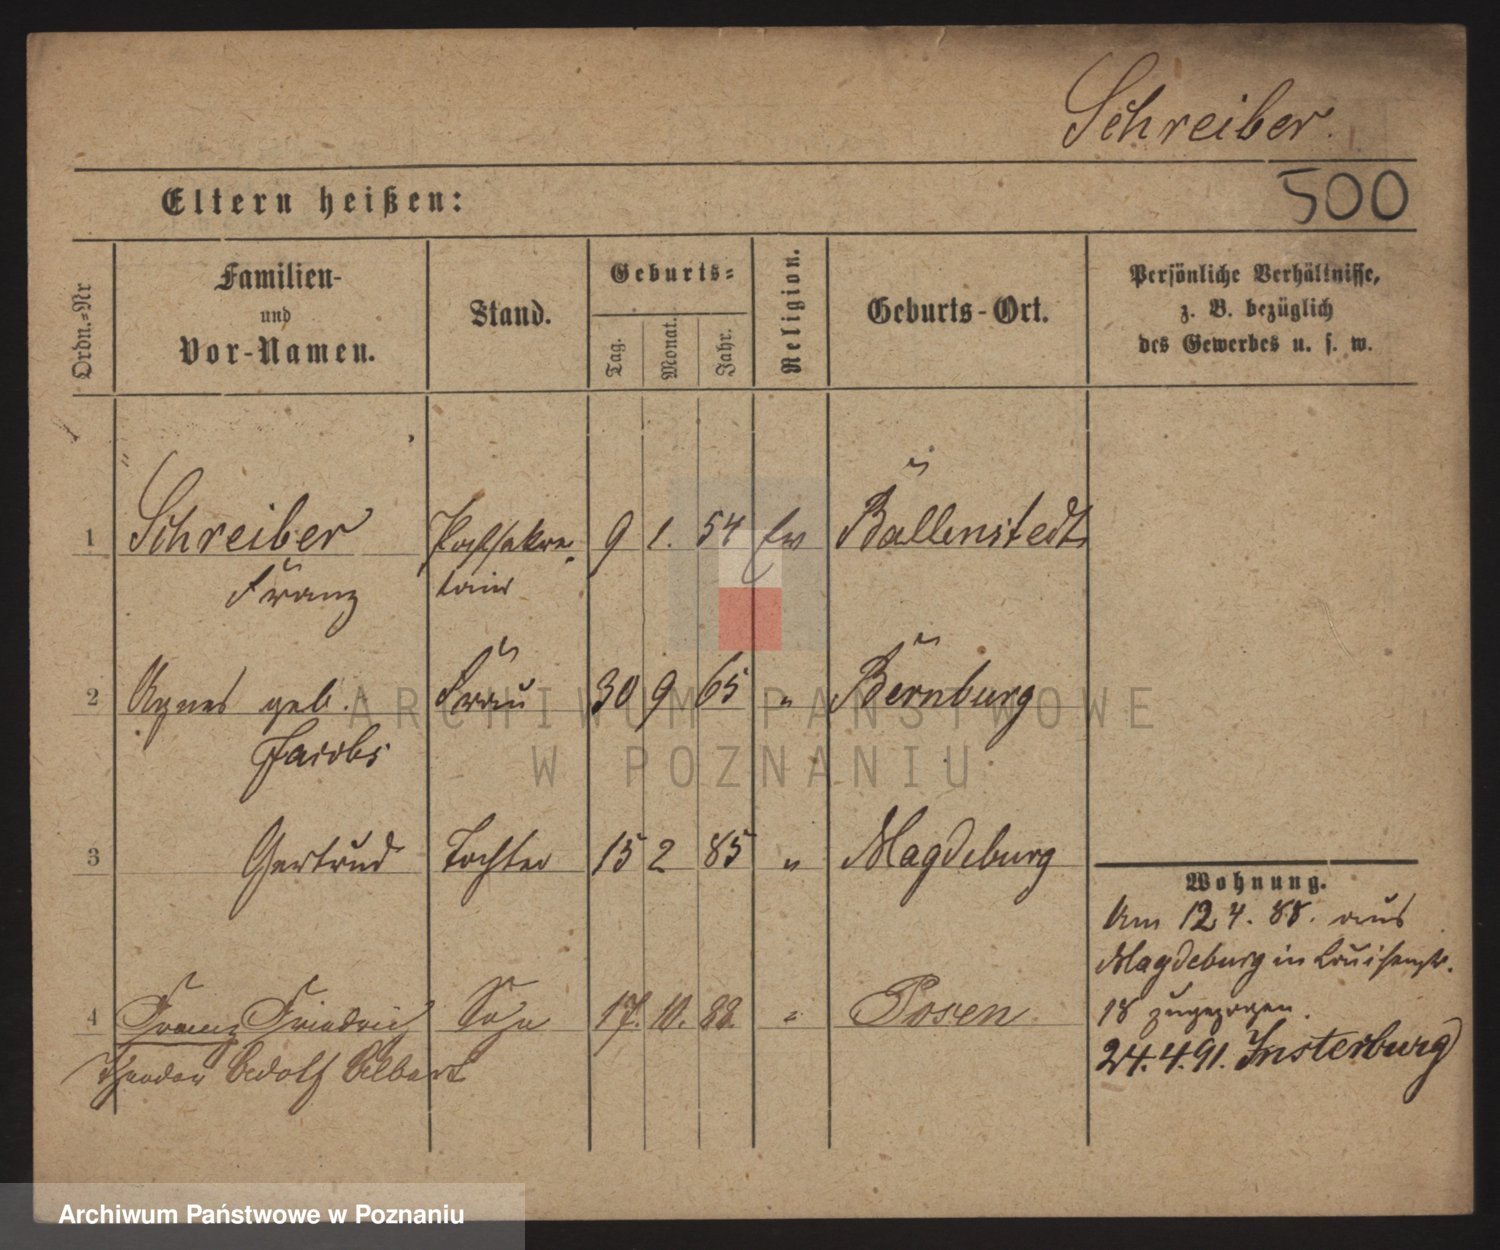 Schreiber.
500
Eltern heißen:
Ordn.=Nr
Familien-
und
Vor-Namen.
Stand.
Geburts=
Tag.
Monat.
Jahr.
Religion.
Geburts-Ort.
Persönliche Verhältnisse,
z. B. bezüglich
des Gewerbes u. s. w.
1 Schreiber Postsekre- 9 1. 54 Ev Ballenstedt
Franz tair
2 Agnes geb. Frau 30 9 65 " Bernburg
Jacobs
3 Gertrud Tochter 15 2 85 " Magdeburg
Wohnung.
Am 12 4. 88. aus
Magdeburg in Louisenstr.
18 zugezogen.
24.4.91. Insterburg
4 Franz Friedrich Sohn 17. 10. 88. " Posen
Theodor Adolf Albert
ARCHIWUM PAŃSTWOWE
W POZNANIU
Archiwum Państwowe w Poznaniu